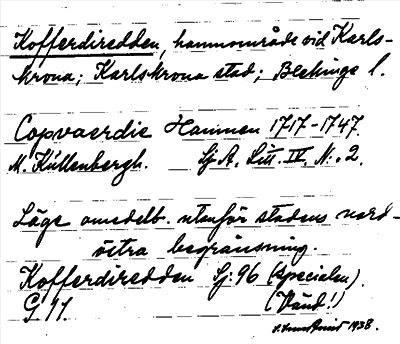 Kofferdiredden, hamnområde vid Karls-
krona; Karlskrona stad; Blekinge l.
Copvaerdie Hamnen 1717-1747.
M. Küllenbergh. Sj. A. Litt. IV. N:o 2.
Läge omedelb. utanför stadens nord-
östra begränsning.
Kofferdiredden Sj: 96 (specialen).
G 11. (Vänd!)
1938.